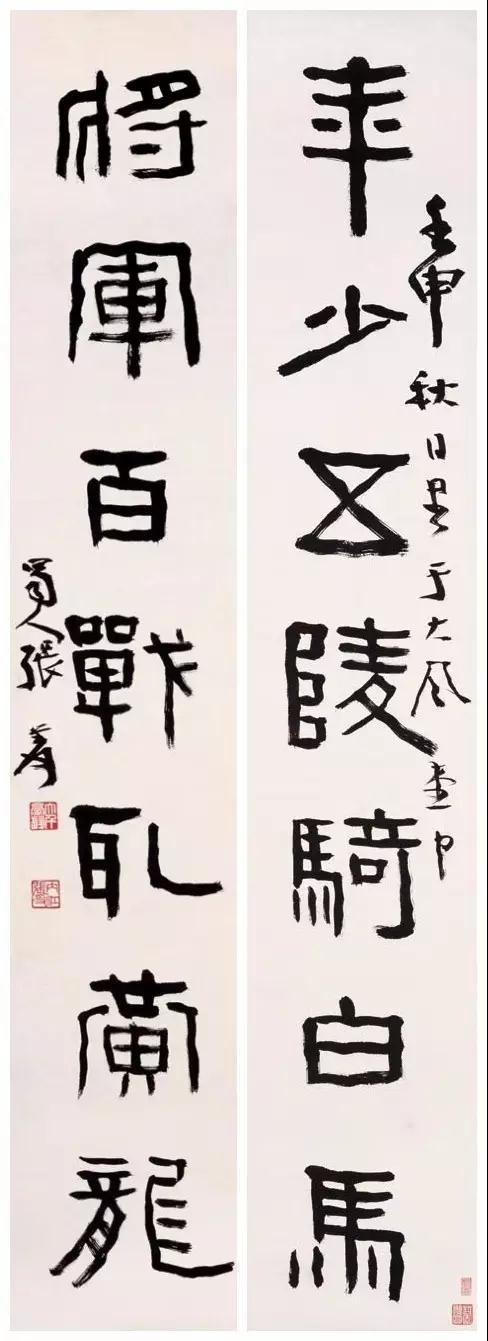 年少五陵騎白馬
壬申秋日書于大風堂中
將軍百戰取黃龍
蜀人張爰